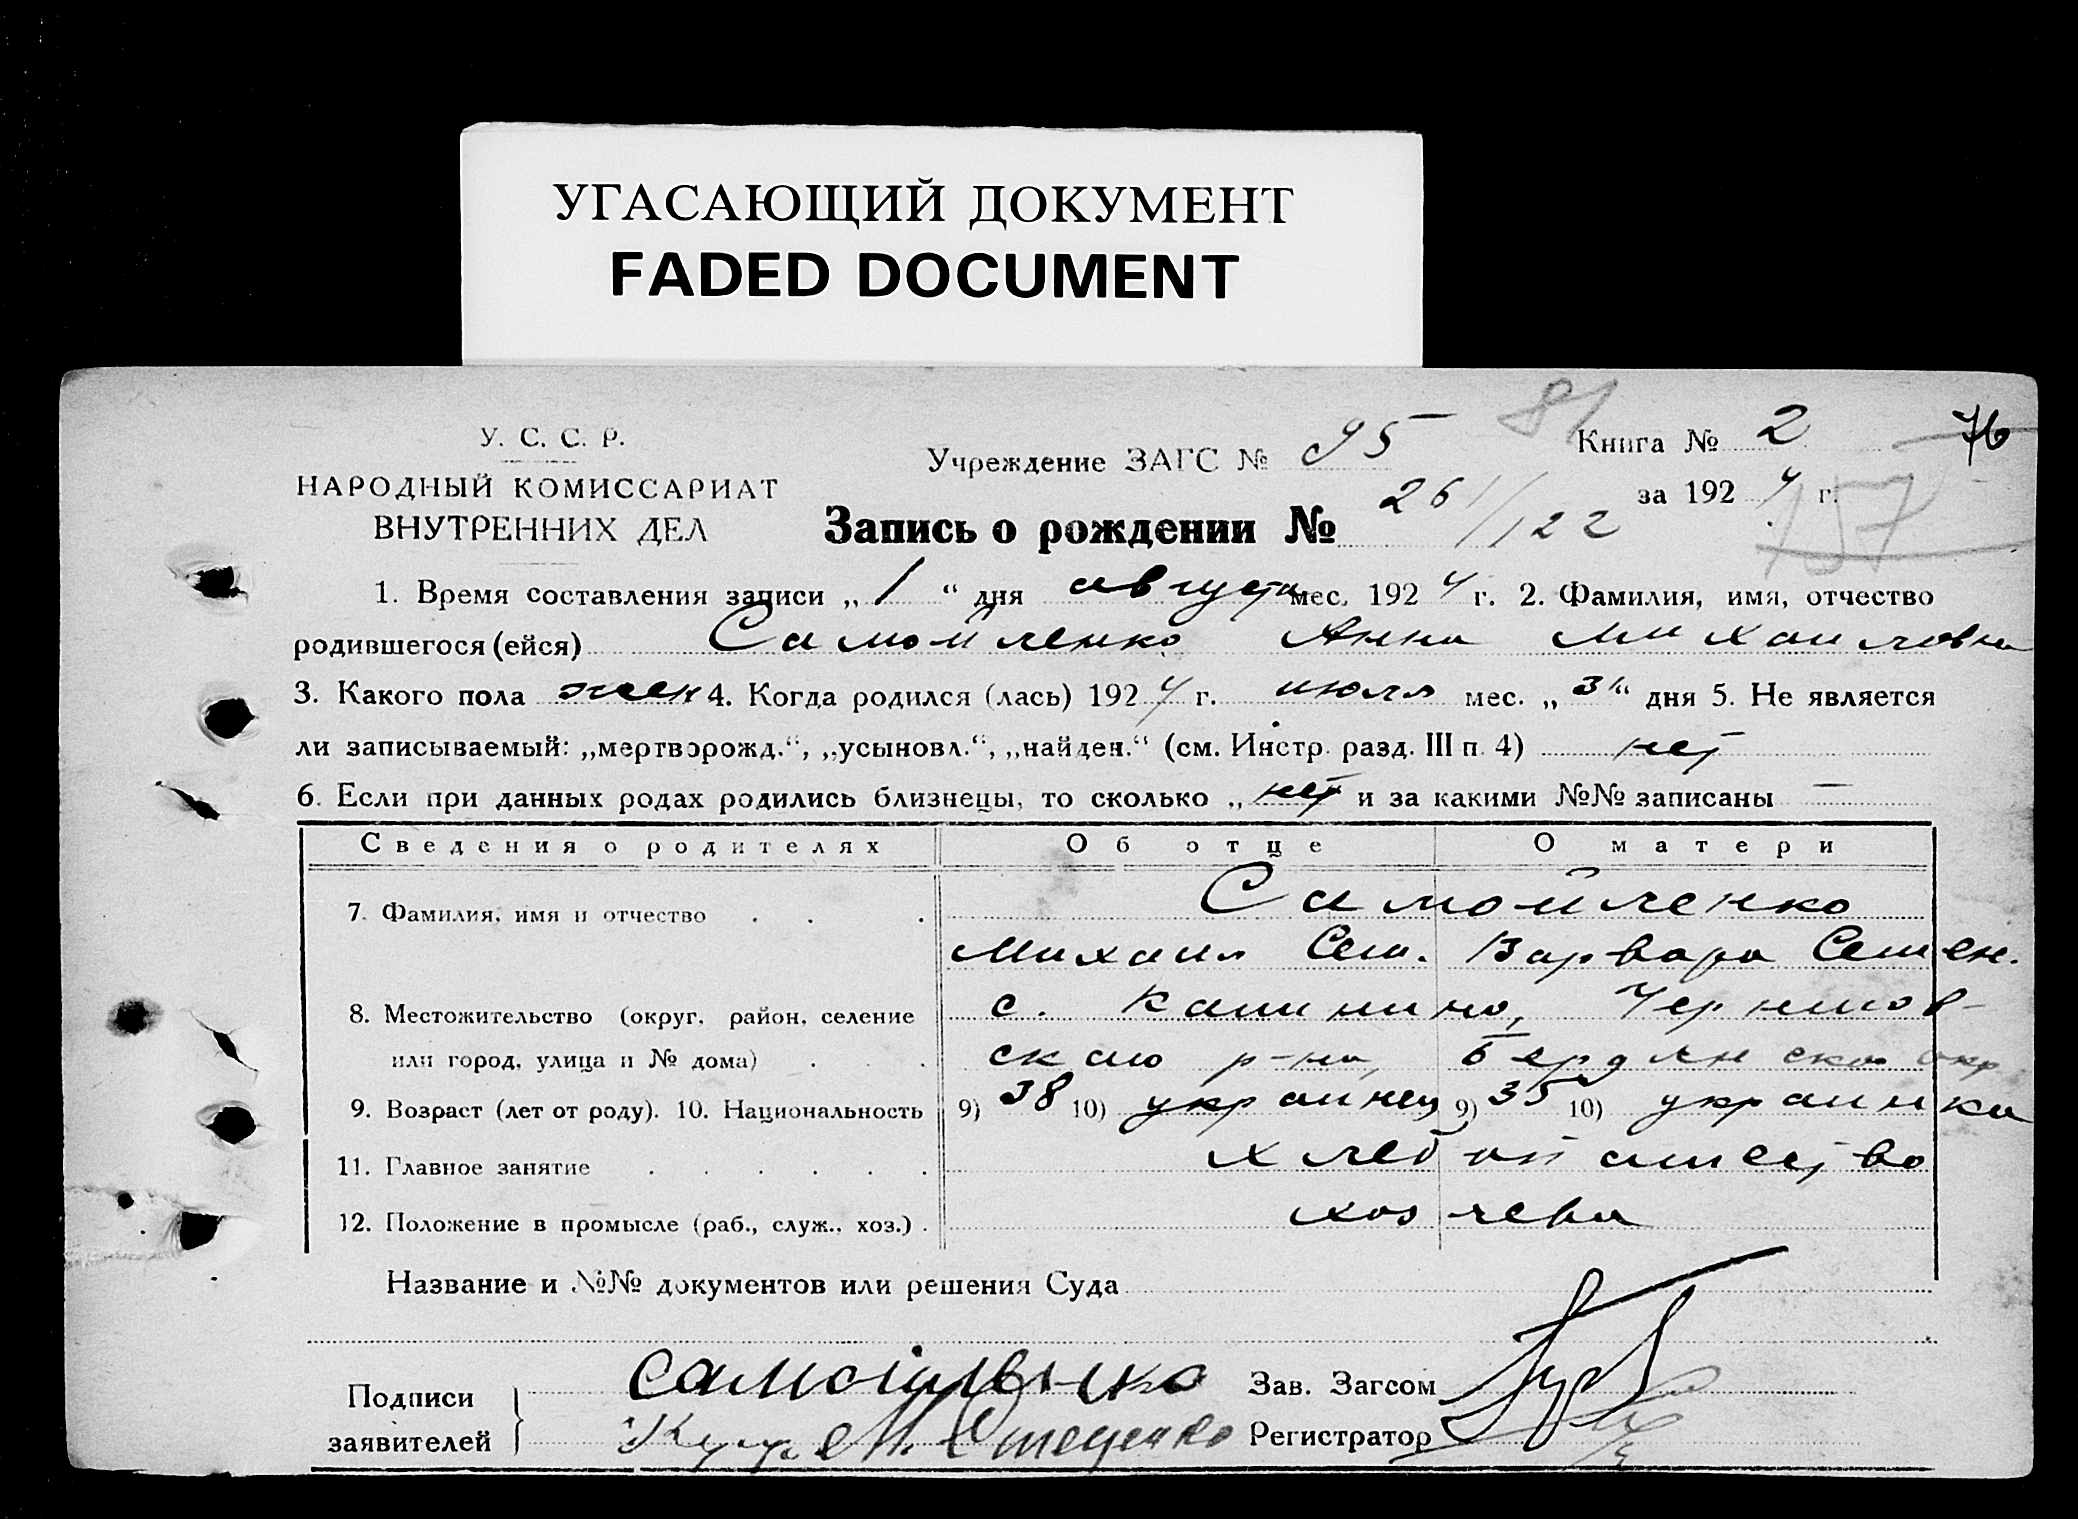 УГАСАЮЩИЙ ДОКУМЕНТ
FADED DOCUMENT
У. С. С. Р.
НАРОДНЫЙ КОМИССАРИАТ
ВНУТРЕННИХ ДЕЛ
Учреждение ЗАГС № 95
81
Книга № 2
76
за 1924 г.
157
Запись о рождении № 261/122
1. Время составления записи „1“ дня августа мес. 1924 г. 2. Фамилия, имя, отчество
родившегося (ейся) Самойленко Анна Михайловна
3. Какого пола жен 4. Когда родился (лась) 1924 г. июля мес. „31“ дня 5. Не является
ли записываемый: „мертворожд.“, „усыновл.“, „найден.“ (см. Инстр. разд. III п. 4) нет
6. Если при данных родах родились близнецы, то сколько „нет и за какими №№ записаны —
Сведения о родителях Об отце О матери
7. Фамилия, имя и отчество Самойленко
Михаил Сем. Варвара Семен.
8. Местожительство (округ, район, селение с.
или город, улица и № дома) р-на, Бердянско окр
9. Возраст (лет от роду). 10. Национальность 9) 38 10) украинец 9) 35 10) украинка
11. Главное занятие хлебопашество
12. Положение в промысле (раб., служ., хоз.) хозяева
Название и №№ документов или решения Суда
Подписи
заявителей
Зав. Загсом
Регистратор